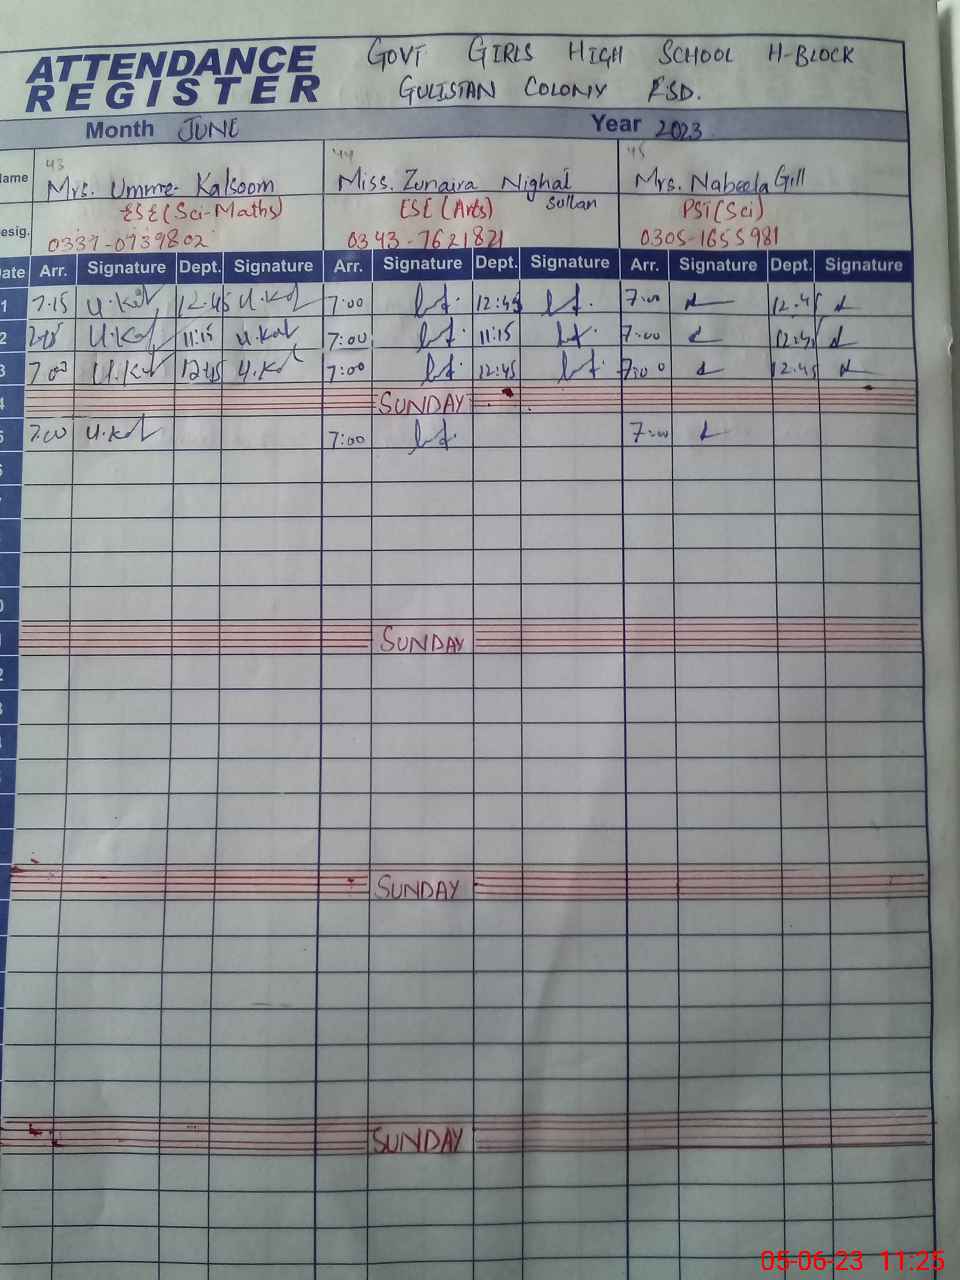 ATTENDANCE REGISTER
GOVT GIRLS HIGH SCHOOL H-BLOCK
GULISTAN COLONY FSD.
Month JUNE Year 2023
43 44 45
ame Mrs. Umme Kalsoom Miss. Zunaira Nighat Sultan Mrs. Nabeela Gill
esig. ESE (Sci-Maths) ESE (Arts) PST (Sci)
0337-0739802 0343-7621821 0305-1655981
ate Arr. Signature Dept. Signature Arr. Signature Dept. Signature Arr. Signature Dept. Signature
1 7.15 U.Kal 12.45 U.Kal 7:00 12:45 7:00 12.45
2 U.Kal 11:15 U.Kal 7:00 11:15 7:00 12:45
3 7.00 U.Kal 12:45 U.Kal 7:00 12:45 7:00 12.45
4 SUNDAY
5 7.00 U.Kal 7:00 7:00
0
SUNDAY
2
3
SUNDAY
SUNDAY
05-06-23 11:25